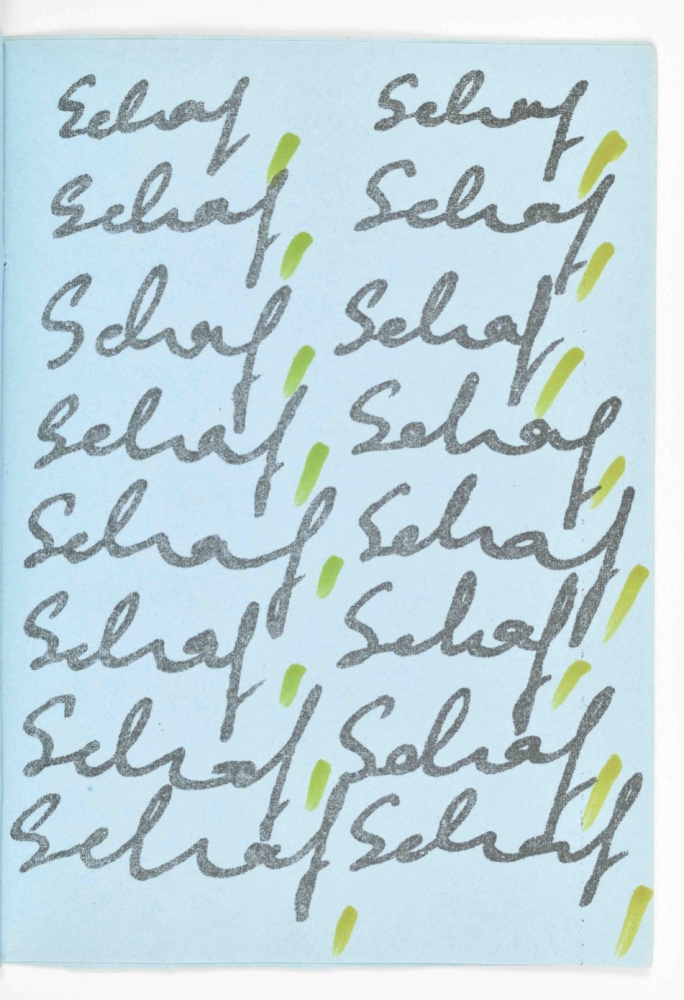 Schaf, Schaf,
Schaf, Schaf,
Schaf, Schaf,
Schaf, Schaf,
Schaf, Schaf,
Schaf, Schaf,
Schaf, Schaf,
Schaf, Schaf,